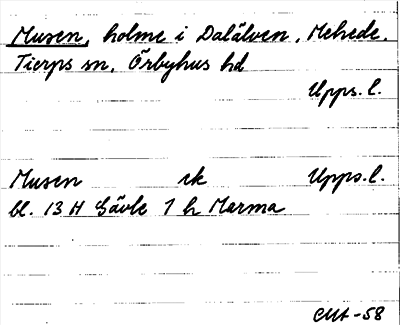 Musen, holme i Dalälven, Mehede,
Tierps sn, Örbyhus hd
Upps. l.
Musen rk Upps. l.
bl. 13 H Gävle 1 h Marma
-58